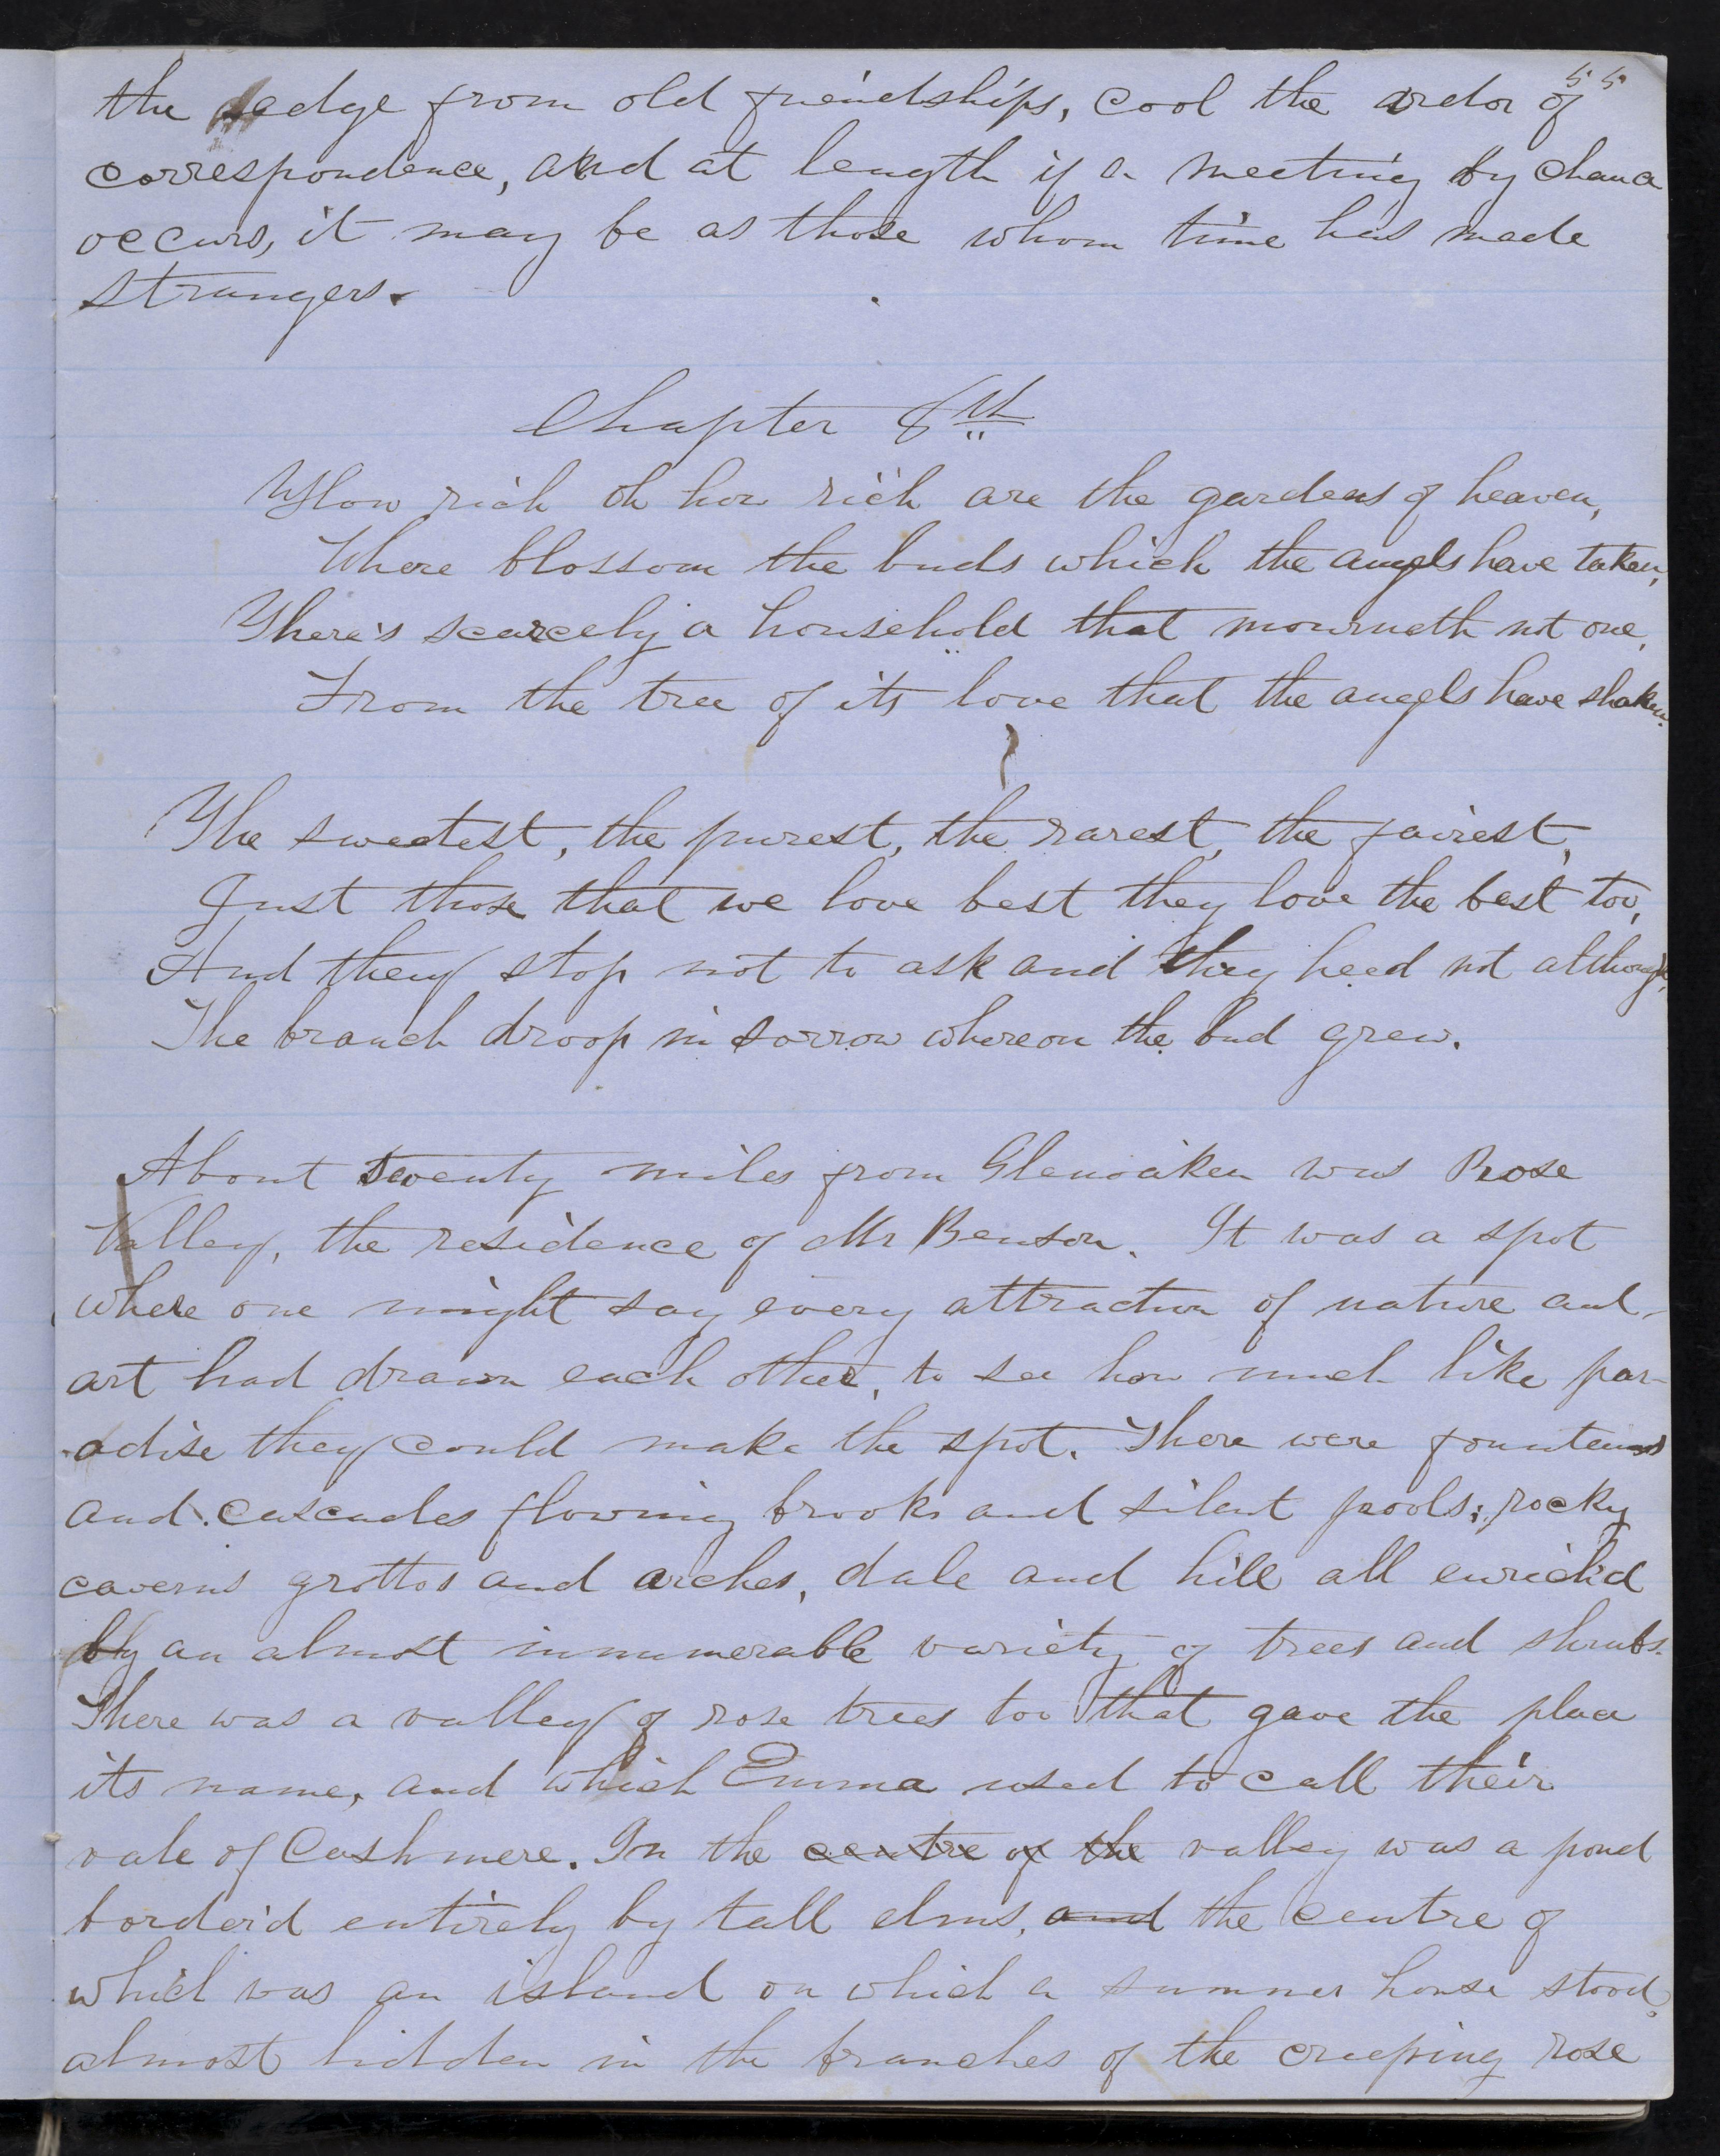 55
the edge from old friendships, cool the ardor of
correspondence, and at length if a meeting by chance
occurs, it may be as those whom time has made
strangers.
Chapter 8th
How rich oh how rich are the gardens of heaven,
Where blossom the buds which the angels have taken,
There's scarcely a household that mourneth not one,
From the tree of its love that the angels have shaken.
The sweetest, the purest, the rarest, the fairest,
Just those that we love best they love the best too,
And they stop not to ask and they heed not although,
The branch droop in sorrow whereon the bud grew.
About twenty miles from Glenoaken was Rose
Valley, the residence of Mr Benson. It was a spot
where one might say every attraction of nature and
art had drawn each other, to see how much like par-
adise they could make the spot. There were fountains
and cascades flowing brooks and silent pools; rocky
caverns grottos and arches, dale and hill all enrich'd
by an almost innumerable variety of trees and shrubs.
There was a valley of rose trees too that gave the place
its name, and which Emma used to call their
vale of Cashmere. In the centre of the valley was a pond
border'd entirely by tall elms, and the centre of
which was an island on which a summer house stood,
almost hidden in the branches of the creeping rose